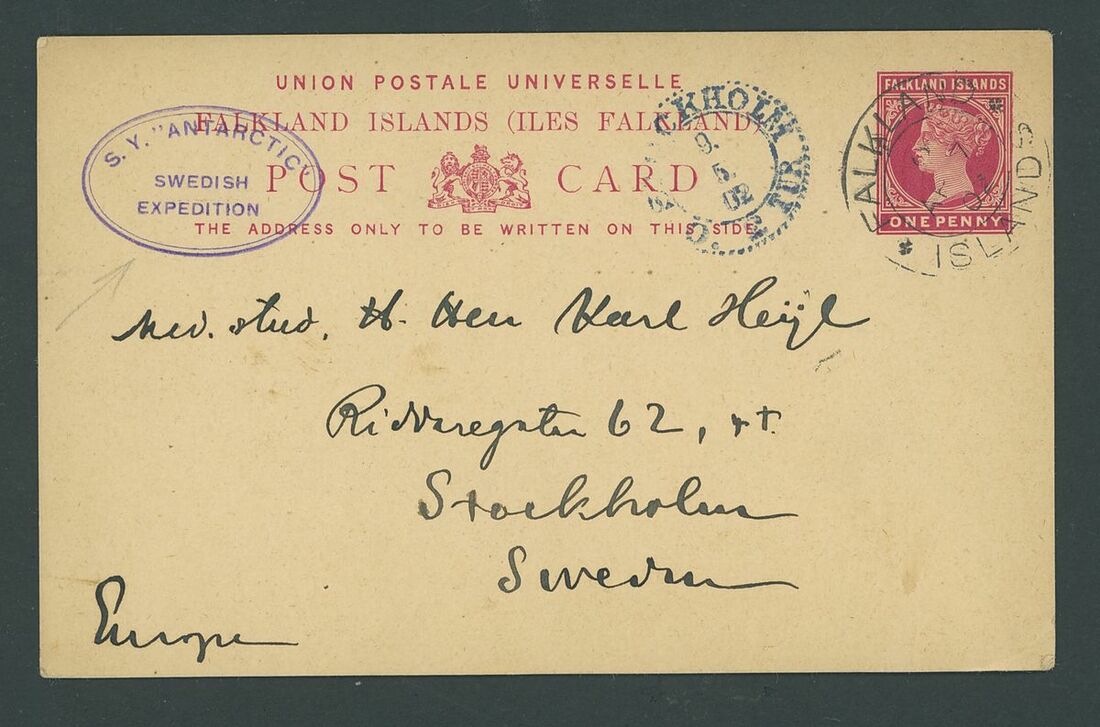 UNION POSTALE UNIVERSELLE
FALKLAND ISLANDS (ILES FALKLAND)
POST CARD
THE ADDRESS ONLY TO BE WRITTEN ON THIS SIDE
S.Y. "ANTARCTIC"
SWEDISH
EXPEDITION
CKHOLM
9.
5
02
TUR
FALKLAND ISLANDS
ONE PENNY
FALKLAND
ISLANDS
Med. stud. H. Herr Karl Heijl
Riddaregatan 62,
Stockholm
Sweden
Europe